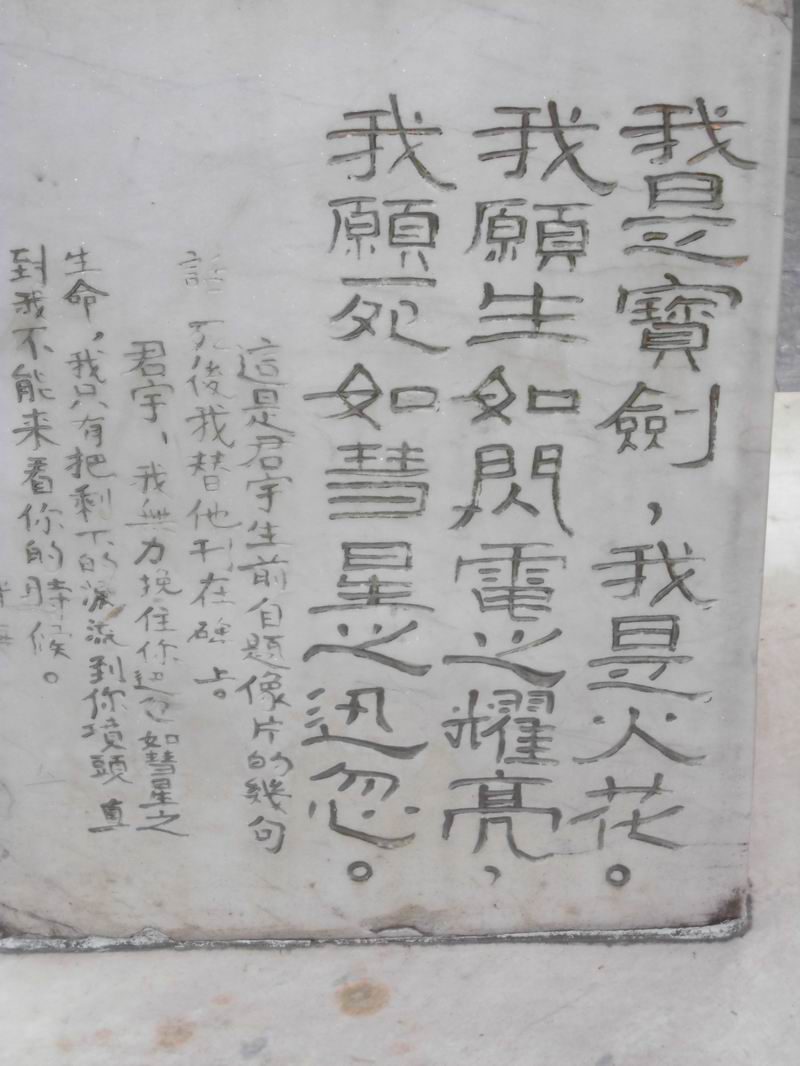 我是寶劍，我是火花。
我願生如閃電之耀亮，
我願死如彗星之迅忽。
這是君宇生前自題像片的幾句
話 死後我替他刊在碑上。
君宇，我無力挽住你迅忽如彗星之
生命，我只有把剩下的淚流到你墳頭 直
到我不能來看你的時候。